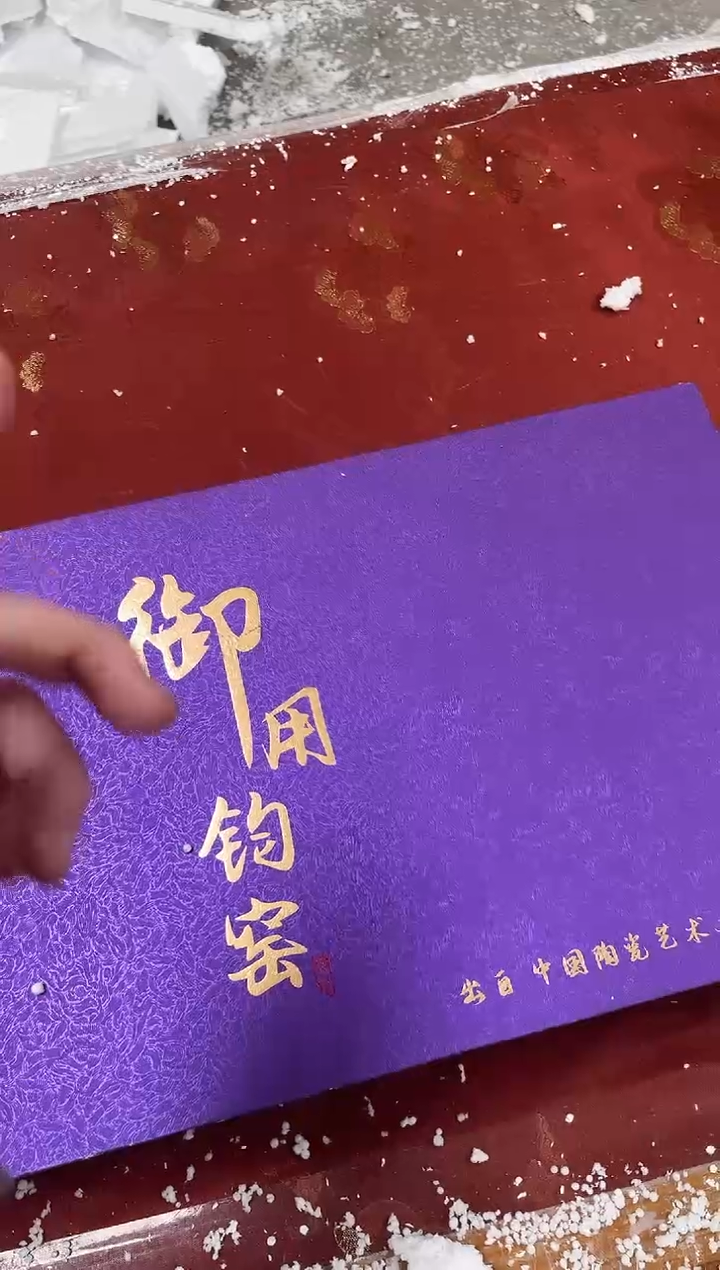 御用钧窑
出自中國陶瓷艺术